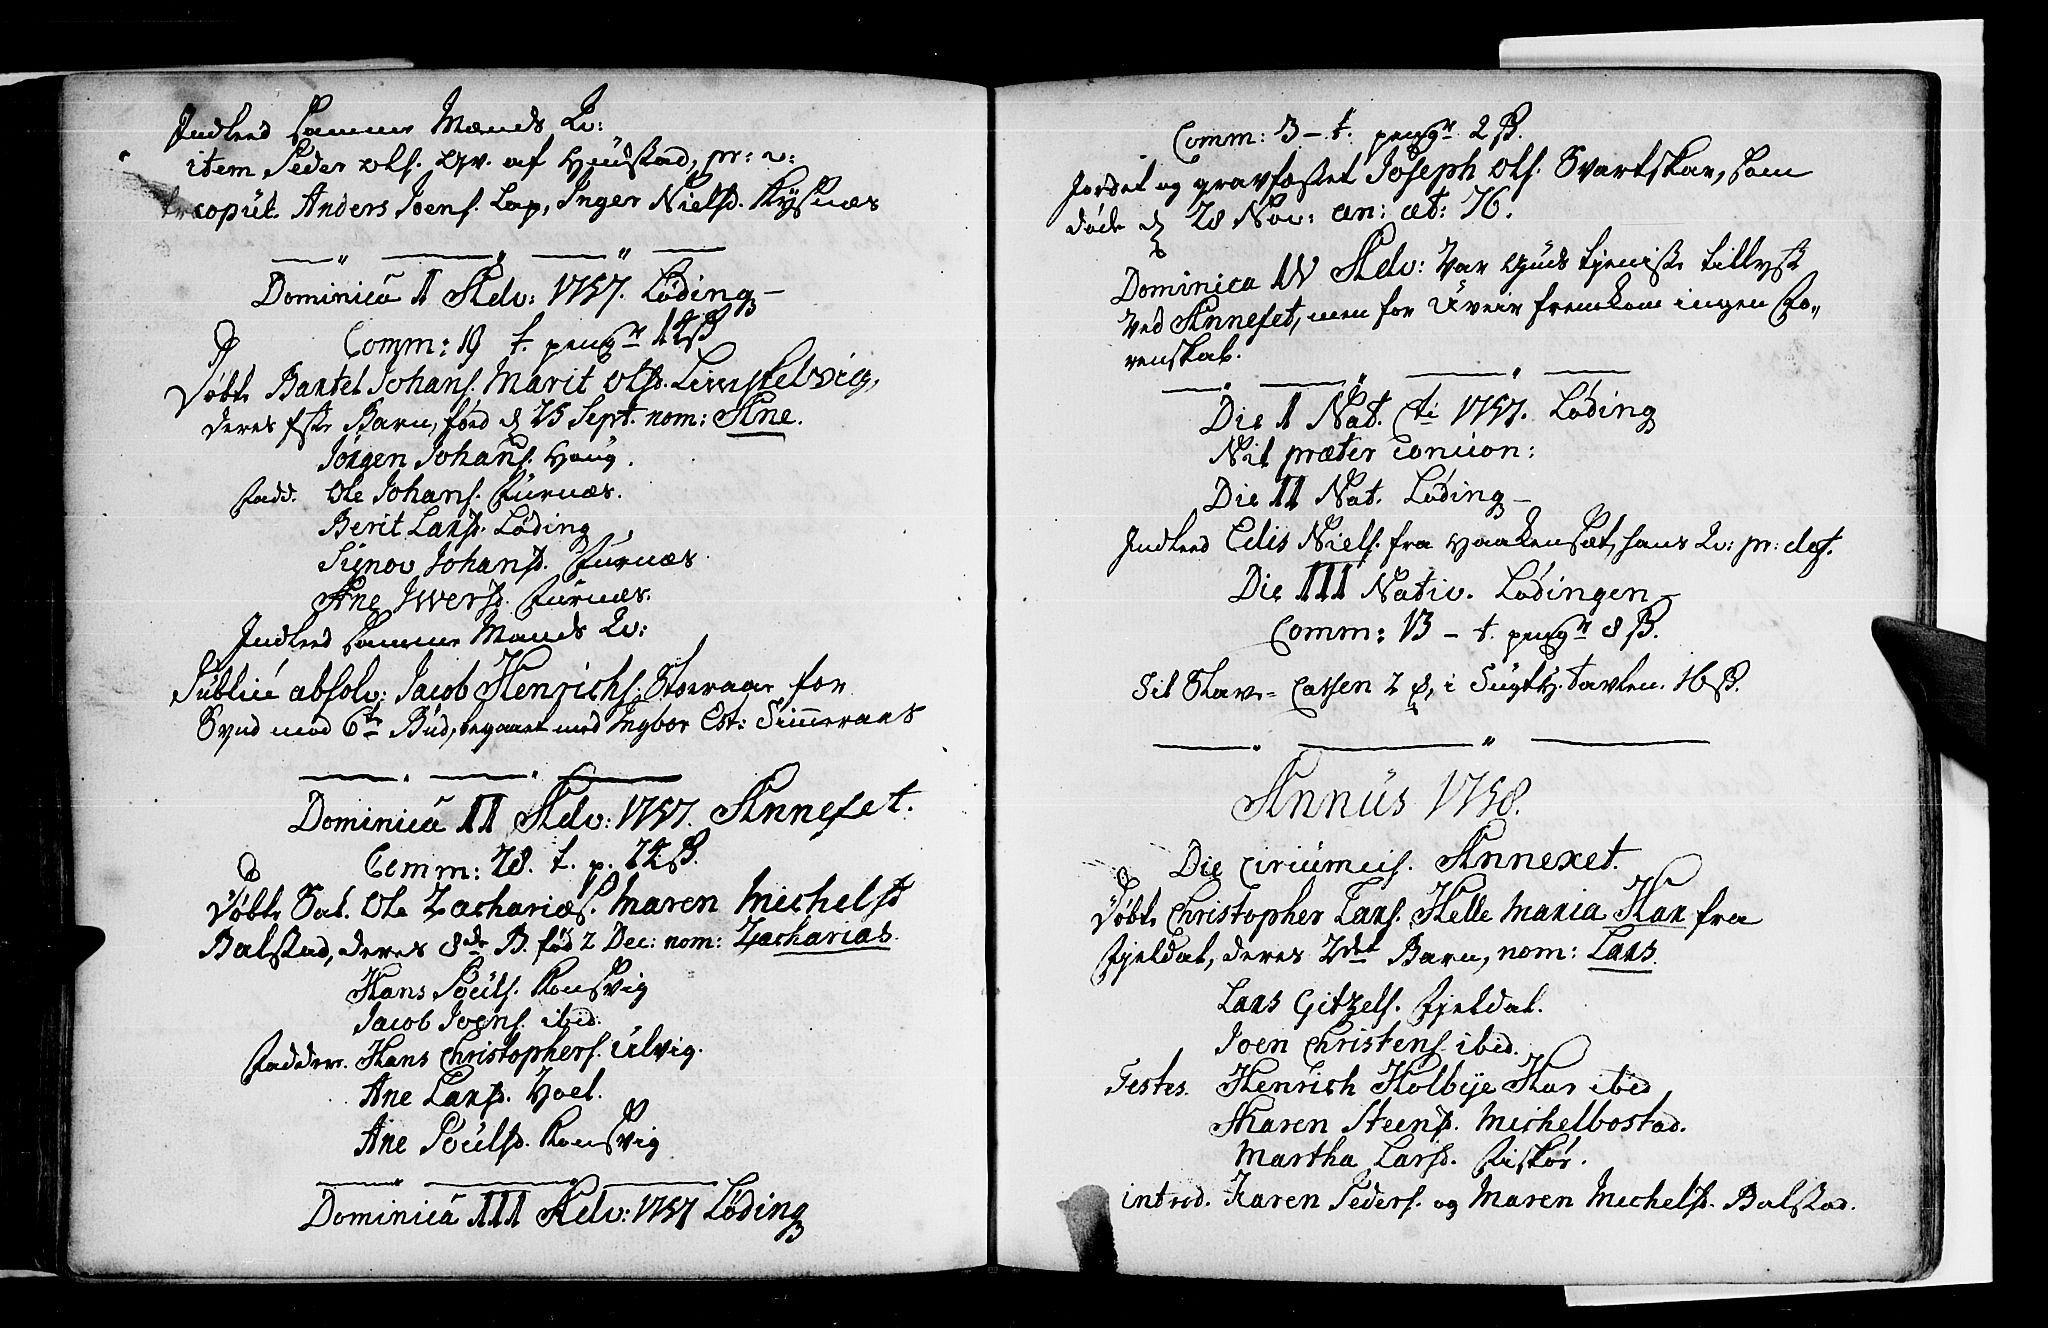 Indleed samme Mands Qv:
item Peder Ols. Qv. af Hustad, pr: n:
copul. Anders Joens. Lap, Inger Nielsd. Kysnæs
Dominica I Adv: 1757. Løding
Comm: 19 t. peng 14 ß
Døbt Bartel Johans. Marit Olsd.
deres første Barn, fød d 25 Sept. nom: Ane.
Jörgen Johans. Houg.
Fadd. Ole Johans. Furnæs.
Berit Larsd. Löding
Signov Johansd. Furnæs.
Ane Iwersd. Furnæs.
Indleed samme Mands Qv:
Publicè absolv: Jacob Henrichs. Storraae for
Synd mod 6te Bud, begaaet med Ingbor
Dominica II Adv: 1757. Annexet.
Comm: 28. t. p. 24 ß.
Døbt Sal. Ole Zachariæs. Maren Michelsd
Balstad, deres 8de B. fød 2 Dec: nom: Zacharias.
Hans Pouls. Ronsvig
Jacob Joens. ibid.
Faddere. Hans Christophers. Ulvig.
Ane Larsd. Hoel.
Ane Poulsd. Ronsvig
Dominica III Adv: 1757 Löding
Comm: 3 - t. peng 2 ß.
Jordet og gravfæstet Joseph Ols. Svartskar, som
døde d 28 Nov: an: æt: 76.
Dominica IV Adv: Var Guds tjeniste tillyst
ved Annexet, men for Uveir fremkom ingen Fo-
renskab.
Die I Nat. Cti 1757. Löding
Nil præter concion:
Die II Nat. Löding
Indleed Elis Niels. fra Haakensæt, hans Qv: pr: def.
Die III Nativ. Lödingen
Comm: 13 - t. peng 8 ß.
Til Slave-Cassen 2 , i Sygth. tavlen. 16 ß.
Annus 1758.
Die circumcis. Annexet.
Døbt Christopher Lars. Helle Maria Har fra
Fjeldal, deres 2det Barn, nom: Lars.
Lars Gitzels. Fjeldal.
Joen Christens. ibid.
Testes. Henrich Holbye Har ibid
Karen Steensd. Michelbostad.
Martha Larsd. Fiskör.
introd. Karen Peders. og Maren Michelsd. Balstad.